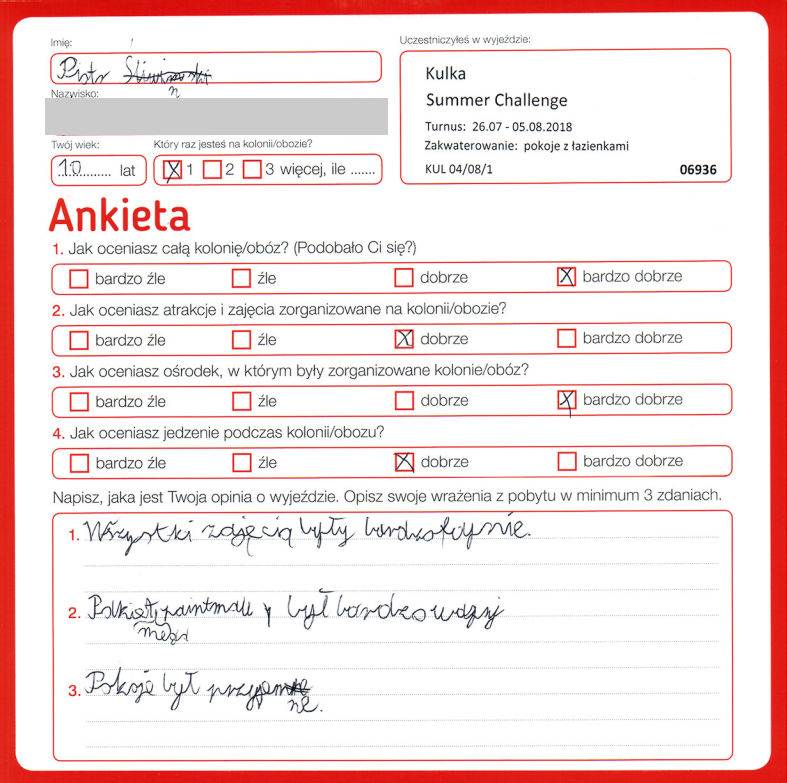 Imię:
Piotr
Nazwisko:
Uczestniczyłeś w wyjeździe:
Kulka
Summer Challenge
Turnus: 26.07 - 05.08.2018
Zakwaterowanie: pokoje z łazienkami
KUL 04/08/1 06936
Twój wiek: Który raz jesteś na kolonii/obozie?
10 lat X 1 2 3 więcej, ile .......
Ankieta
1. Jak oceniasz całą kolonię/obóz? (Podobało Ci się?)
bardzo źle źle dobrze X bardzo dobrze
2. Jak oceniasz atrakcje i zajęcia zorganizowane na kolonii/obozie?
bardzo źle źle X dobrze bardzo dobrze
3. Jak oceniasz ośrodek, w którym były zorganizowane kolonie/obóz?
bardzo źle źle dobrze X bardzo dobrze
4. Jak oceniasz jedzenie podczas kolonii/obozu?
bardzo źle źle X dobrze bardzo dobrze
Napisz, jaka jest Twoja opinia o wyjeździe. Opisz swoje wrażenia z pobytu w minimum 3 zdaniach.
1. Wszystki zdjęcią były bardzo fajnie.
2. był bardzo
3. Pokoje był